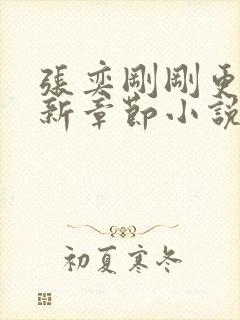 張奕剛剛更
新章節小說
初夏寒冬